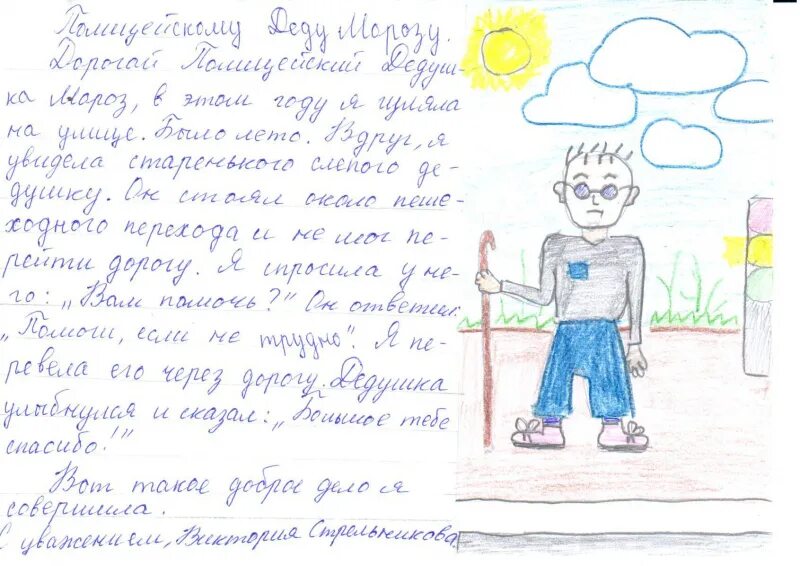 Полицейскому Деду Морозу.
Дорогой Полицейский Дедуш-
ка Мороз, в этом году я гуляла
на улице. Было лето. Вдруг, я
увидела старенького слепого де-
душку. Он стоял около пеше-
ходного перехода и не мог пе-
рейти дорогу. Я спросила у не-
го: „Вам помочь?" Он ответил:
„Помоги, если не трудно". Я пе-
ревела его через дорогу. Дедушка
улыбнулся и сказал: „Большое тебе
спасибо!"
Вот такое доброе дело я
совершила.
С уважением, Виктория Стрельникова